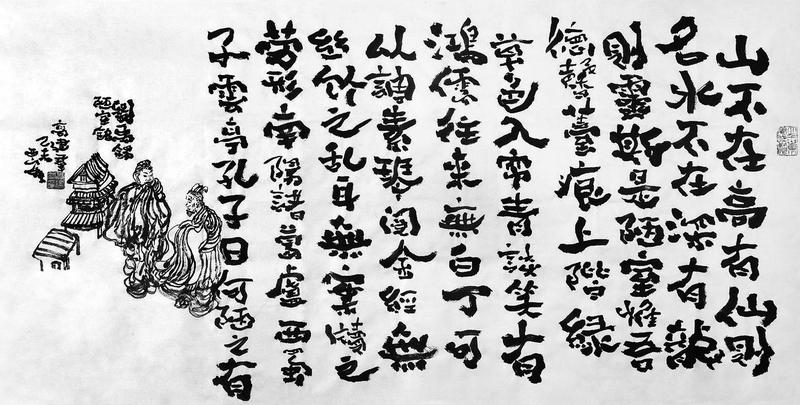 山不在高有仙則
名水不在深有龍
則靈斯是陋室惟吾
德馨薹痕上階綠
草色入帘青談笑有
鴻儒往來無白丁可
以調素琴閱金經無
絲竹之乱耳無案牘之
劳形南陽諸葛廬西蜀
子雲亭孔子曰何陋之有
劉禹錫
陋室銘
乙未